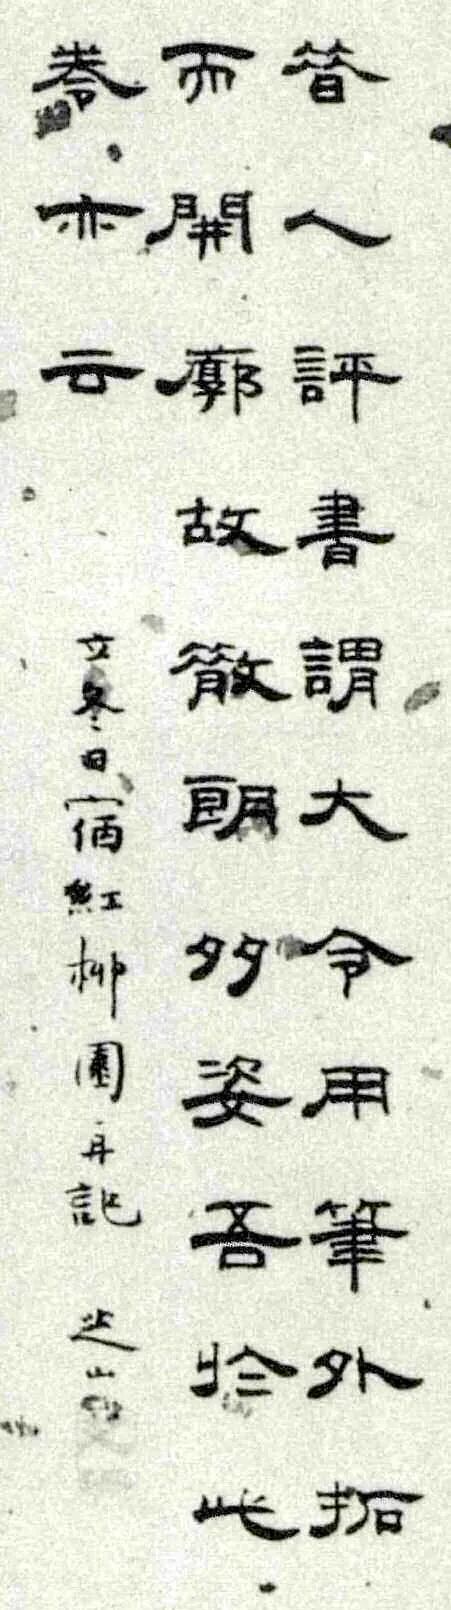 昔人評書謂大令用筆外拓
而開廓故散朗多姿吾於此
卷亦云
立冬日宿紅柳園再記